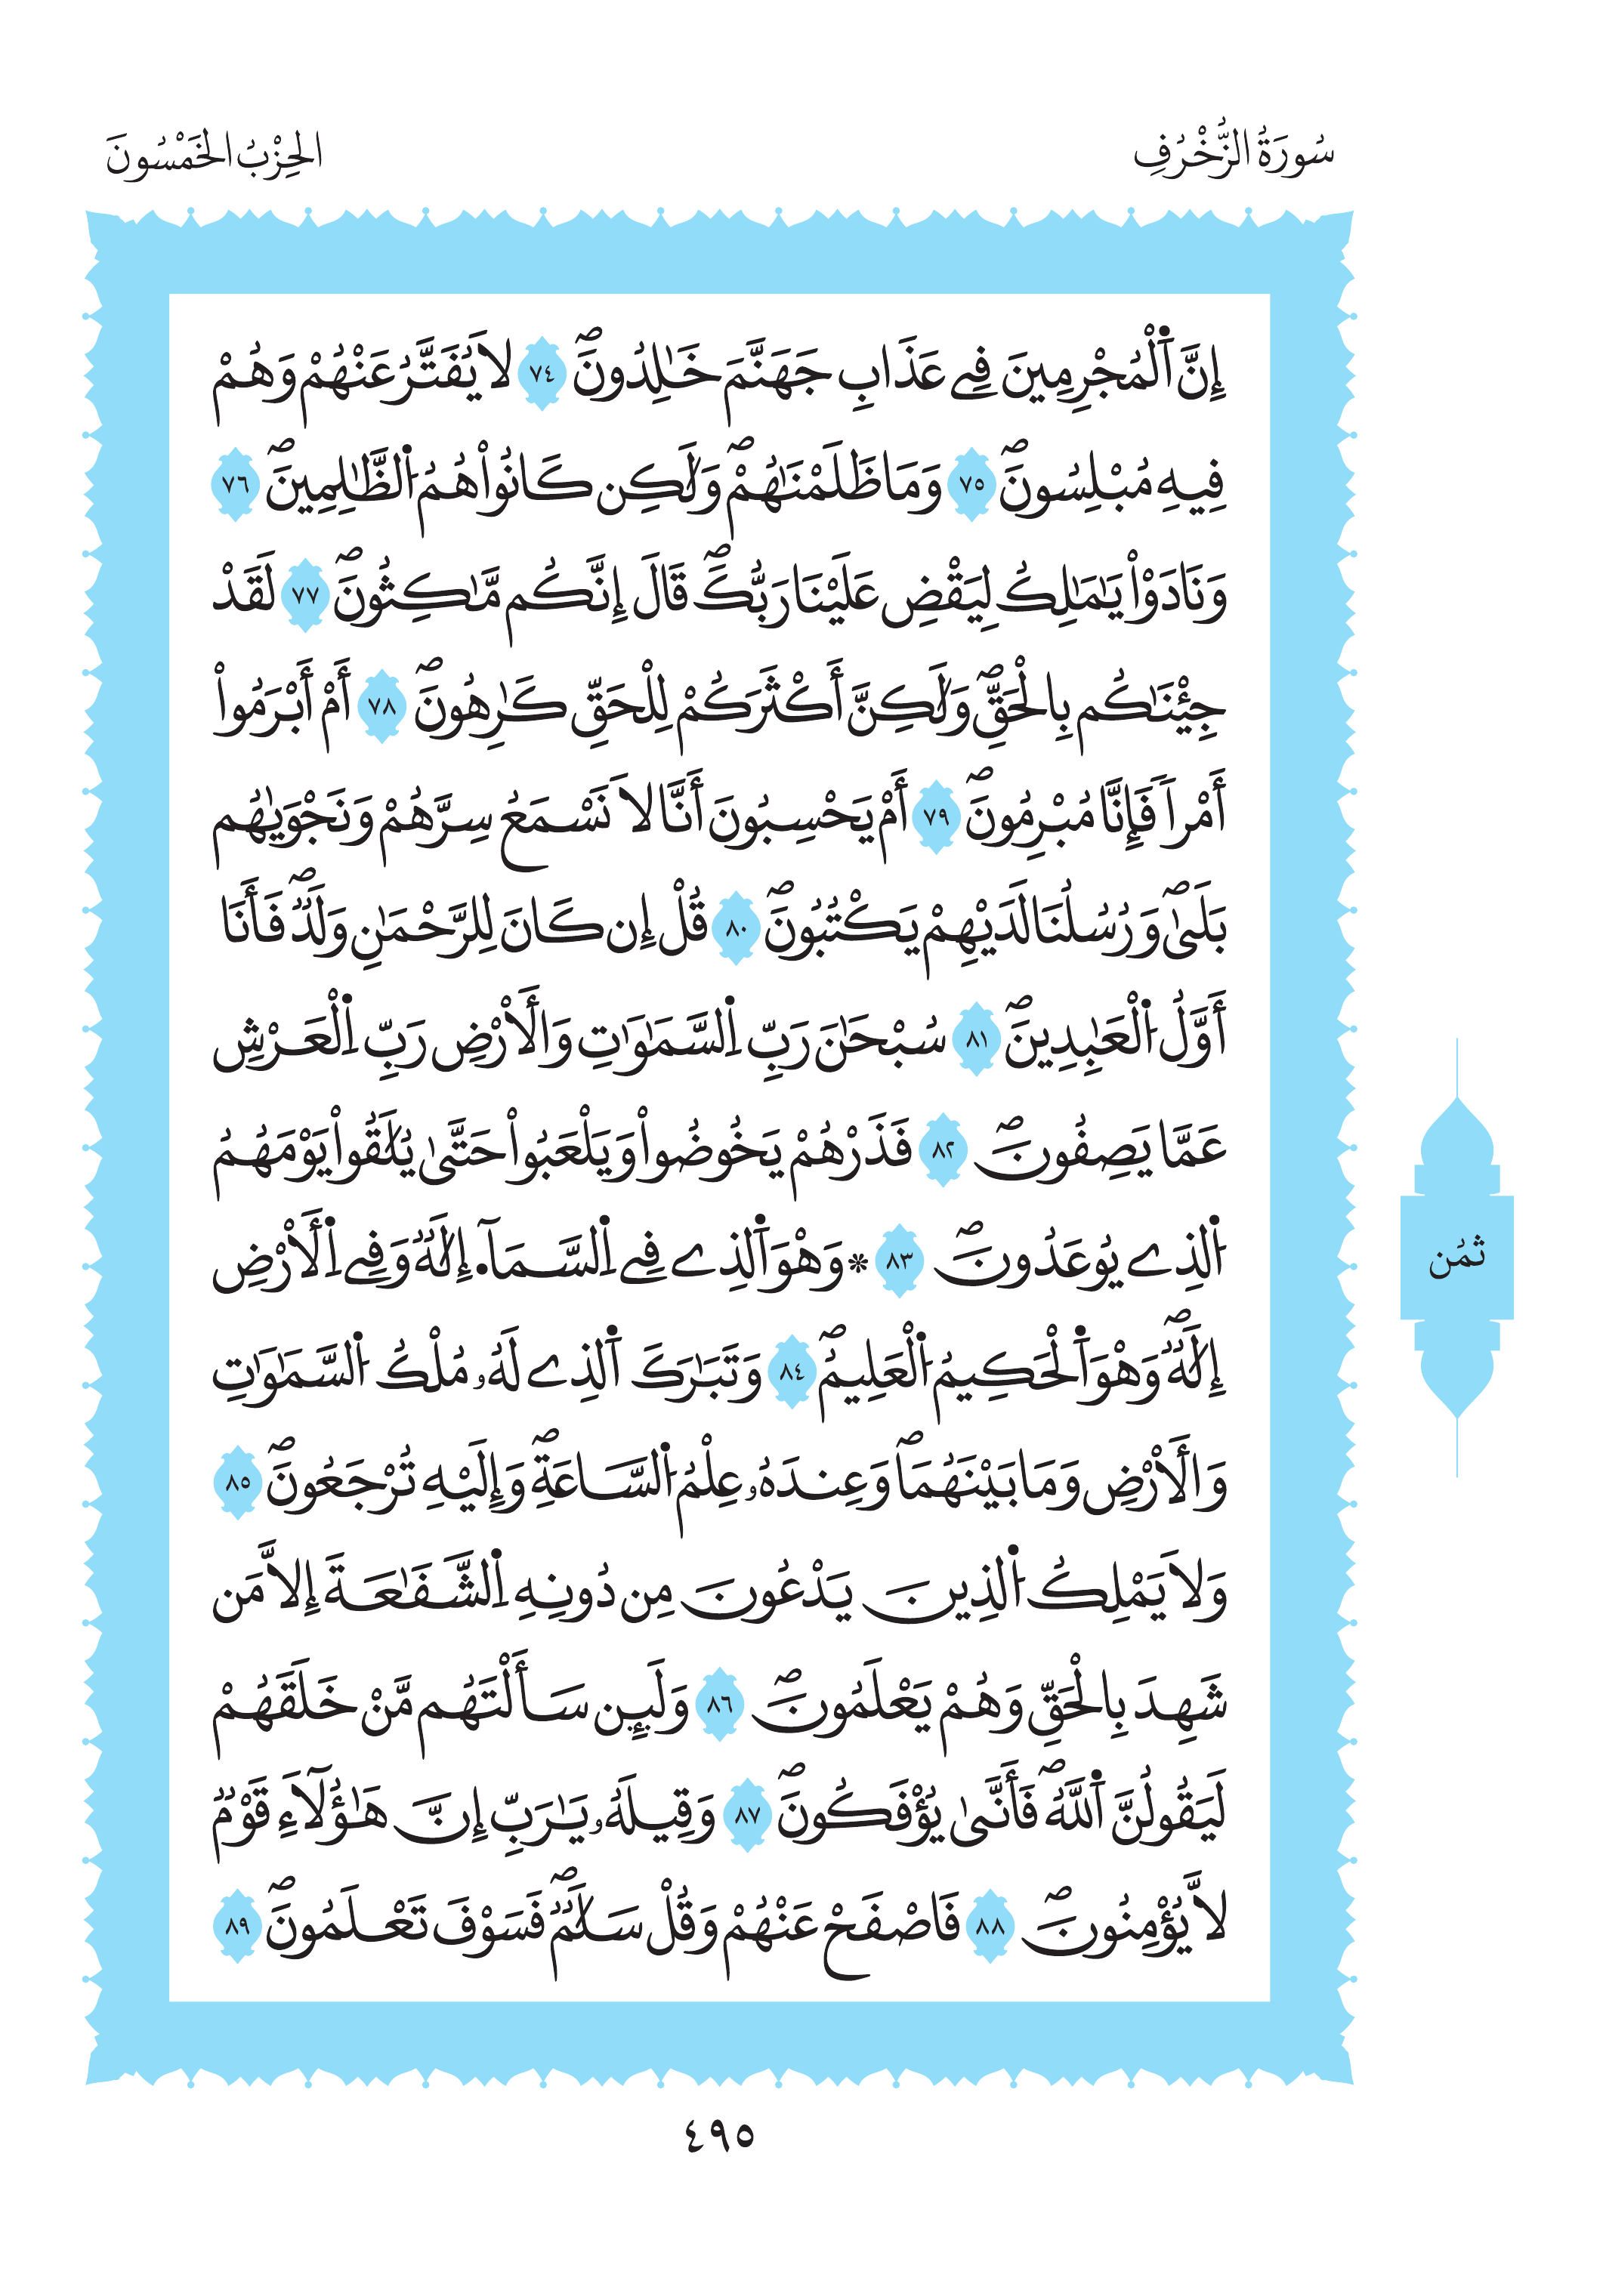 سُورَةُ الزُّخْرُفِ
الحِزْبُ الخَمْسُونَ
إِنَّ اَ۬لْمُجْرِمِينَ فِے عَذَابِ جَهَنَّمَ خَٰلِدُونَۖ ٧٤ لَا يُفَتَّرُ عَنْهُمْ وَهُمْ
فِيهِ مُبْلِسُونَۖ ٧٥ وَمَا ظَلَمْنَٰهُمْۖ وَلَٰكِن كَانُواْ هُمُ اُ۬لظَّٰلِمِينَۖ ٧٦
وَنَادَوْاْ يَٰمَٰلِكُ لِيَقْضِ عَلَيْنَا رَبُّكَۖ قَالَ إِنَّكُم مَّٰكِثُونَۖ ٧٧ لَقَدْ
جِئْنَٰكُم بِالْحَقِّۖ وَلَٰكِنَّ أَكْثَرَكُمْ لِلْحَقِّ كَٰرِهُونَۖ ٧٨ أَمْ أَبْرَمُواْ
أَمْراٗ فَإِنَّا مُبْرِمُونَۖ ٧٩ أَمْ يَحْسِبُونَ أَنَّا لَا نَسْمَعُ سِرَّهُمْ وَنَجْوَيٰهُم
بَلَىٰۖ وَرُسُلُنَا لَدَيْهِمْ يَكْتُبُونَۖ ٨٠ قُلْ إِن كَانَ لِلرَّحْمَٰنِ وَلَدٞۖ فَأَنَا
أَوَّلُ اُ۬لْعَٰبِدِينَۖ ٨١ سُبْحَٰنَ رَبِّ اِ۬لسَّمَٰوَٰتِ وَالْأَرْضِ رَبِّ اِ۬لْعَرْشِ
عَمَّا يَصِفُونَۖ ٨٢ فَذَرْهُمْ يَخُوضُواْ وَيَلْعَبُواْ حَتَّىٰ يُلَٰقُواْ يَوْمَهُمُ
اُ۬لذِے يُوعَدُونَۖ ٨٣ * وَهْوَ اَ۬لذِے فِے اِ۬لسَّمَآ۰ِ إِلَٰهٞ وَفِے اِ۬لْأَرْضِ
إِلَٰهٞۖ وَهْوَ اَ۬لْحَكِيمُ اُ۬لْعَلِيمُۖ ٨٤ وَتَبَٰرَكَ اَ۬لذِے لَهُۥ مُلْكُ اُ۬لسَّمَٰوَٰتِ
وَالْأَرْضِ وَمَا بَيْنَهُمَاۖ وَعِندَهُۥ عِلْمُ اُ۬لسَّاعَةِۖ وَإِلَيْهِ تُرْجَعُونَۖ ٨٥
وَلَا يَمْلِكُ اُ۬لذِينَ يَدْعُونَ مِن دُونِهِ اِ۬لشَّفَٰعَةَ إِلَّا مَن
شَهِدَ بِالْحَقِّ وَهُمْ يَعْلَمُونَۖ ٨٦ وَلَئِن سَأَلْتَهُم مَّنْ خَلَقَهُمْ
لَيَقُولُنَّ اَ۬للَّهُۖ فَأَنَّىٰ يُؤْفَكُونَۖ ٨٧ وَقِيلَهُۥ يَٰرَبِّ إِنَّ هَٰؤُلَآءِ قَوْمٞ
لَّا يُؤْمِنُونَۖ ٨٨ فَاصْفَحْ عَنْهُمْ وَقُلْ سَلَٰمٞۖ فَسَوْفَ تَعْلَمُونَۖ ٨٩
ثُمُن
٤٩٥